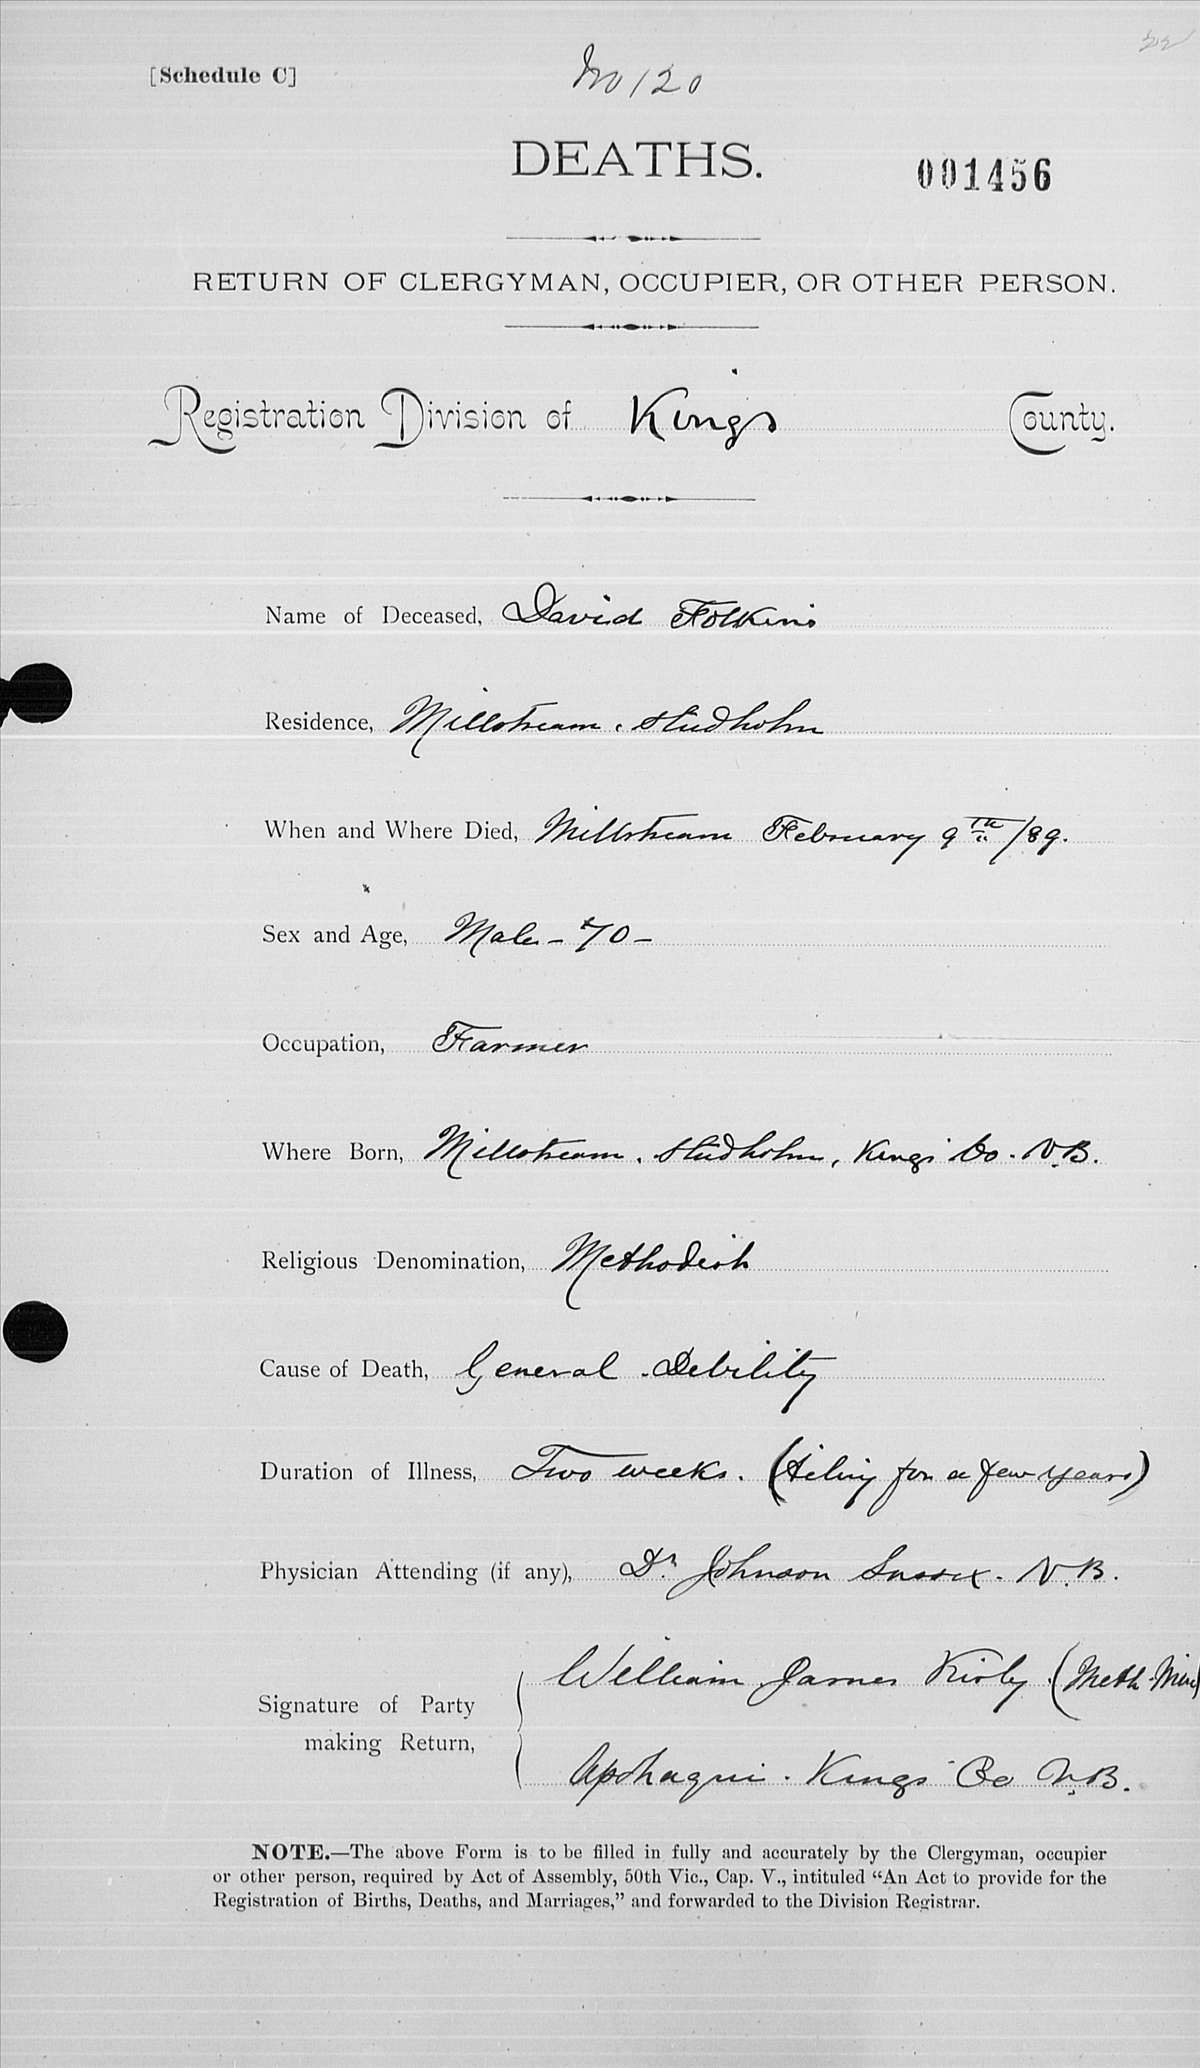 [Schedule C]
No 120
DEATHS.
001456
RETURN OF CLERGYMAN, OCCUPIER, OR OTHER PERSON.
Registration Division of Kings County.
Name of Deceased, David Folkins
Residence, Millstream. Studholm
When and Where Died, Millstream February 9th /89.
Sex and Age, Male - 70 -
Occupation, Farmer
Where Born, Millstream. Studholm, Kings Co. N.B.
Religious Denomination, Methodist
Cause of Death, General Debility
Duration of Illness, Two weeks. (Ailing for a few years)
Physician Attending (if any), Dr Johnson Sussex. N.B.
William James Kirby (Meth. Min)
Signature of Party
making Return,
Apohaqui. Kings Co N.B.
NOTE.—The above Form is to be filled in fully and accurately by the Clergyman, occupier
or other person, required by Act of Assembly, 50th Vic., Cap. V., intituled “An Act to provide for the
Registration of Births, Deaths, and Marriages,” and forwarded to the Division Registrar.